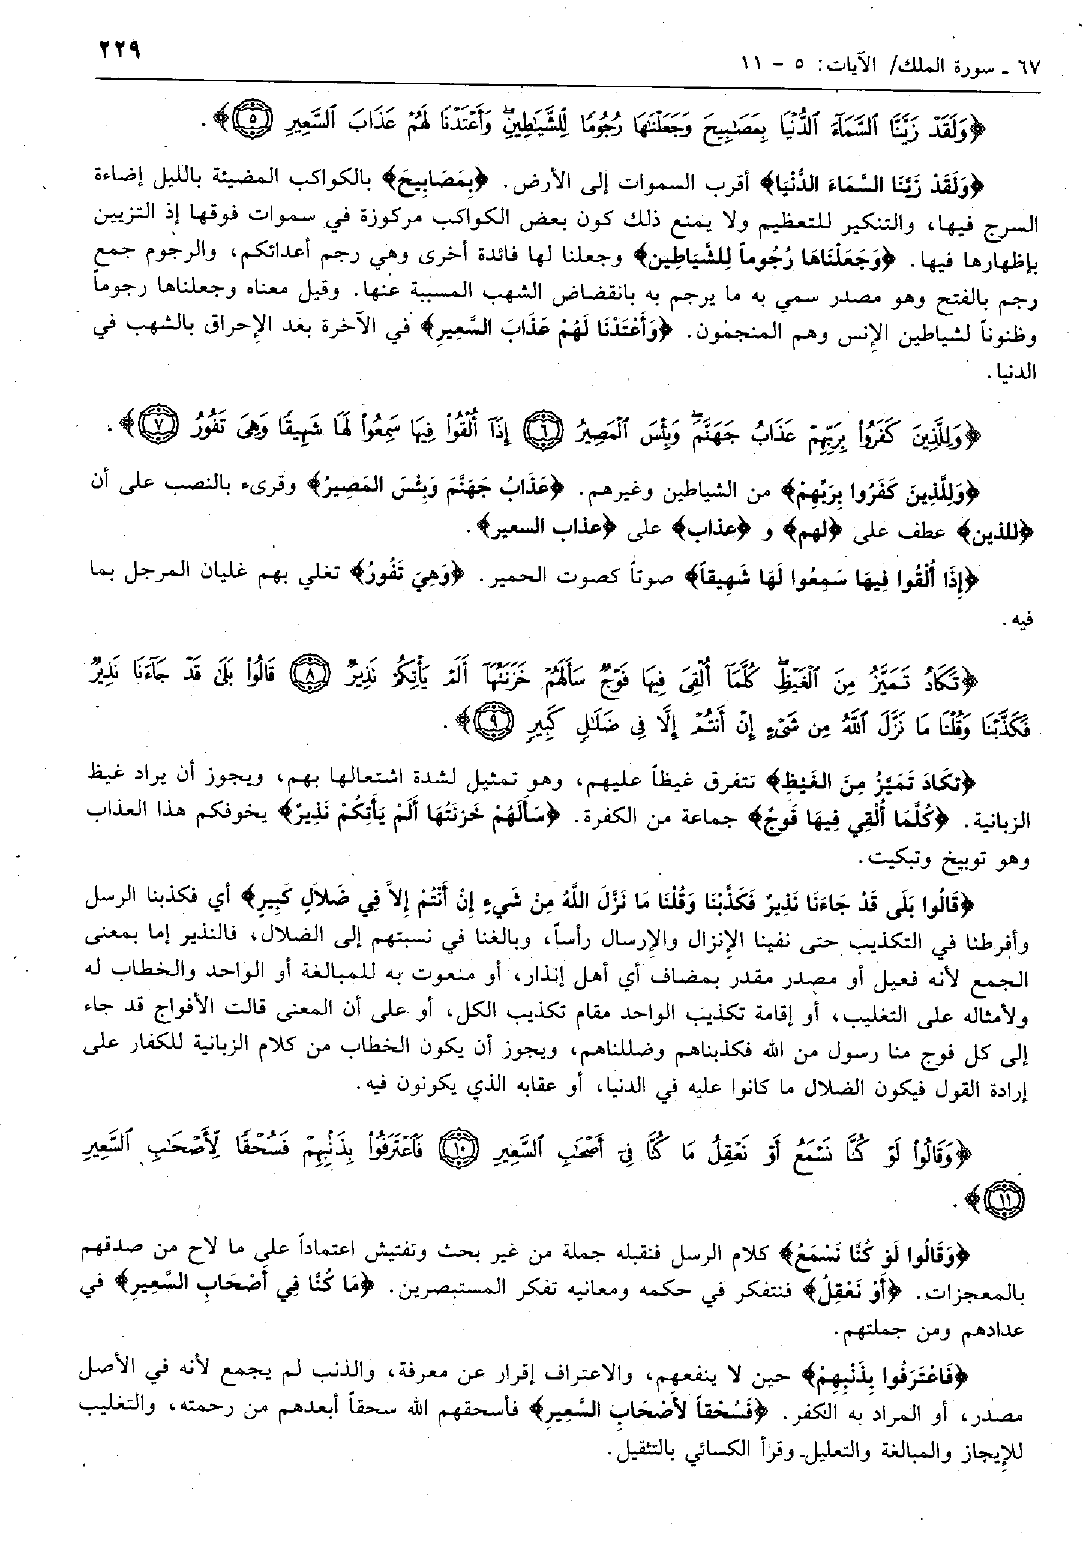 ٦٧ ـ سورة الملك/ الآيات: ٥ - ١١
٢٢٩
﴿وَلَقَدْ زَيَّنَّا ٱلسَّمَآءَ ٱلدُّنْيَا بِمَصَٰبِيحَ وَجَعَلْنَٰهَا رُجُومًا لِّلشَّيَٰطِينِۖ وَأَعْتَدْنَا لَهُمْ عَذَابَ ٱلسَّعِيرِ ٥﴾.
﴿وَلَقَدْ زَيَّنَا السَّمَاءَ الدُّنْيَا﴾ أقرب السموات إلى الأرض. ﴿بِمَصَابِيحَ﴾ بالكواكب المضيئة بالليل إضاءة
السرج فيها، والتنكير للتعظيم ولا يمنع ذلك كون بعض الكواكب مركوزة في سموات فوقها إذ التزيين
بإظهارها فيها. ﴿وَجَعَلْنَاهَا رُجُوماً لِلشَّيَاطِينِ﴾ وجعلنا لها فائدة أخرى وهي رجم أعدائكم، والرجوم جمع
رجم بالفتح وهو مصدر سمي به ما يرجم به بانقضاض الشهب المسببة عنها. وقيل معناه وجعلناها رجوماً
وظنوناً لشياطين الإنس وهم المنجمون. ﴿وَأَعْتَدْنَا لَهُمْ عَذَابَ السَّعِيرِ﴾ في الآخرة بعد الإحراق بالشهب في
الدنيا.
﴿وَلِلَّذِينَ كَفَرُوا۟ بِرَبِّهِمْ عَذَابُ جَهَنَّمَۖ وَبِئْسَ ٱلْمَصِيرُ ٦ إِذَآ أُلْقُوا۟ فِيهَا سَمِعُوا۟ لَهَا شَهِيقًا وَهِىَ تَفُورُ ٧﴾.
﴿وَلِلَّذِينَ كَفَرُوا بِرَبِّهِمْ﴾ من الشياطين وغيرهم. ﴿عَذَابُ جَهَنَّمَ وَبِئْسَ المَصِيرُ﴾ وقرىء بالنصب على أن
﴿للذين﴾ عطف على ﴿لهم﴾ و ﴿عذاب﴾ على ﴿عذاب السعير﴾.
﴿إِذَا أُلْقُوا فِيهَا سَمِعُوا لَهَا شَهِيقاً﴾ صوتاً كصوت الحمير. ﴿وَهِيَ تَفُورُ﴾ تغلي بهم غليان المرجل بما
فيه.
﴿تَكَادُ تَمَيَّزُ مِنَ ٱلْغَيْظِۖ كُلَّمَآ أُلْقِىَ فِيهَا فَوْجٌ سَأَلَهُمْ خَزَنَتُهَآ أَلَمْ يَأْتِكُمْ نَذِيرٌ ٨ قَالُوا۟ بَلَىٰ قَدْ جَآءَنَا نَذِيرٌ
فَكَذَّبْنَا وَقُلْنَا مَا نَزَّلَ ٱللَّهُ مِن شَىْءٍ إِنْ أَنتُمْ إِلَّا فِى ضَلَٰلٍ كَبِيرٍ ٩﴾.
﴿تَكَادَ تَمَيَّزُ مِنَ الغَيْظِ﴾ تتفرق غيظاً عليهم، وهو تمثيل لشدة اشتعالها بهم، ويجوز أن يراد غيظ
الزبانية. ﴿كُلَّمَا أُلْقِي فِيهَا فَوْجٌ﴾ جماعة من الكفرة. ﴿سَأَلَهُمْ خَزَنَتُهَا أَلَمْ يَأْتِكُمْ نَذِيرٌ﴾ يخوفكم هذا العذاب
وهو توبيخ وتبكيت.
﴿قَالُوا بَلَى قَدْ جَاءَنَا نَذِيرٌ فَكَذَّبْنَا وَقُلْنَا مَا نَزَّلَ اللَّهُ مِنْ شَيءٍ إِنْ أَنْتُمْ إِلاَّ فِي ضَلاَلٍ كَبِيرٍ﴾ أي فكذبنا الرسل
وأفرطنا في التكذيب حتى نفينا الإنزال والإرسال رأساً، وبالغنا في نسبتهم إلى الضلال، فالنذير إما بمعنى
الجمع لأنه فعيل أو مصدر مقدر بمضاف أي أهل إنذار، أو منعوت به للمبالغة أو الواحد والخطاب له
ولأمثاله على التغليب، أو إقامة تكذيب الواحد مقام تكذيب الكل، أو على أن المعنى قالت الأفواج قد جاء
إلى كل فوج منا رسول من الله فكذبناهم وضللناهم، ويجوز أن يكون الخطاب من كلام الزبانية للكفار على
إرادة القول فيكون الضلال ما كانوا عليه في الدنيا، أو عقابه الذي يكونون فيه.
﴿وَقَالُوا۟ لَوْ كُنَّا نَسْمَعُ أَوْ نَعْقِلُ مَا كُنَّا فِىٓ أَصْحَٰبِ ٱلسَّعِيرِ ١٠ فَٱعْتَرَفُوا۟ بِذَنۢبِهِمْ فَسُحْقًا لِّأَصْحَٰبِ ٱلسَّعِيرِ
١١﴾.
﴿وَقَالُوا لَوْ كُنَّا نَسْمَعُ﴾ كلام الرسل فنقبله جملة من غير بحث وتفتيش اعتماداً على ما لاح من صدقهم
بالمعجزات. ﴿أَوْ نَعْقِلُ﴾ فنتفكر في حكمه ومعانيه تفكر المستبصرين. ﴿مَا كُنَّا فِي أَصْحَابِ السَّعِيرِ﴾ في
عدادهم ومن جملتهم.
﴿فَاعْتَرَفُوا بِذَنْبِهِمْ﴾ حين لا ينفعهم، والاعتراف إقرار عن معرفة، والذنب لم يجمع لأنه في الأصل
مصدر، أو المراد به الكفر. ﴿فَسُحْقاً لأَصْحَابِ السَّعِيرِ﴾ فأسحقهم الله سحقاً أبعدهم من رحمته، والتغليب
للإيجاز والمبالغة والتعليل. وقرأ الكسائي بالتثقيل.